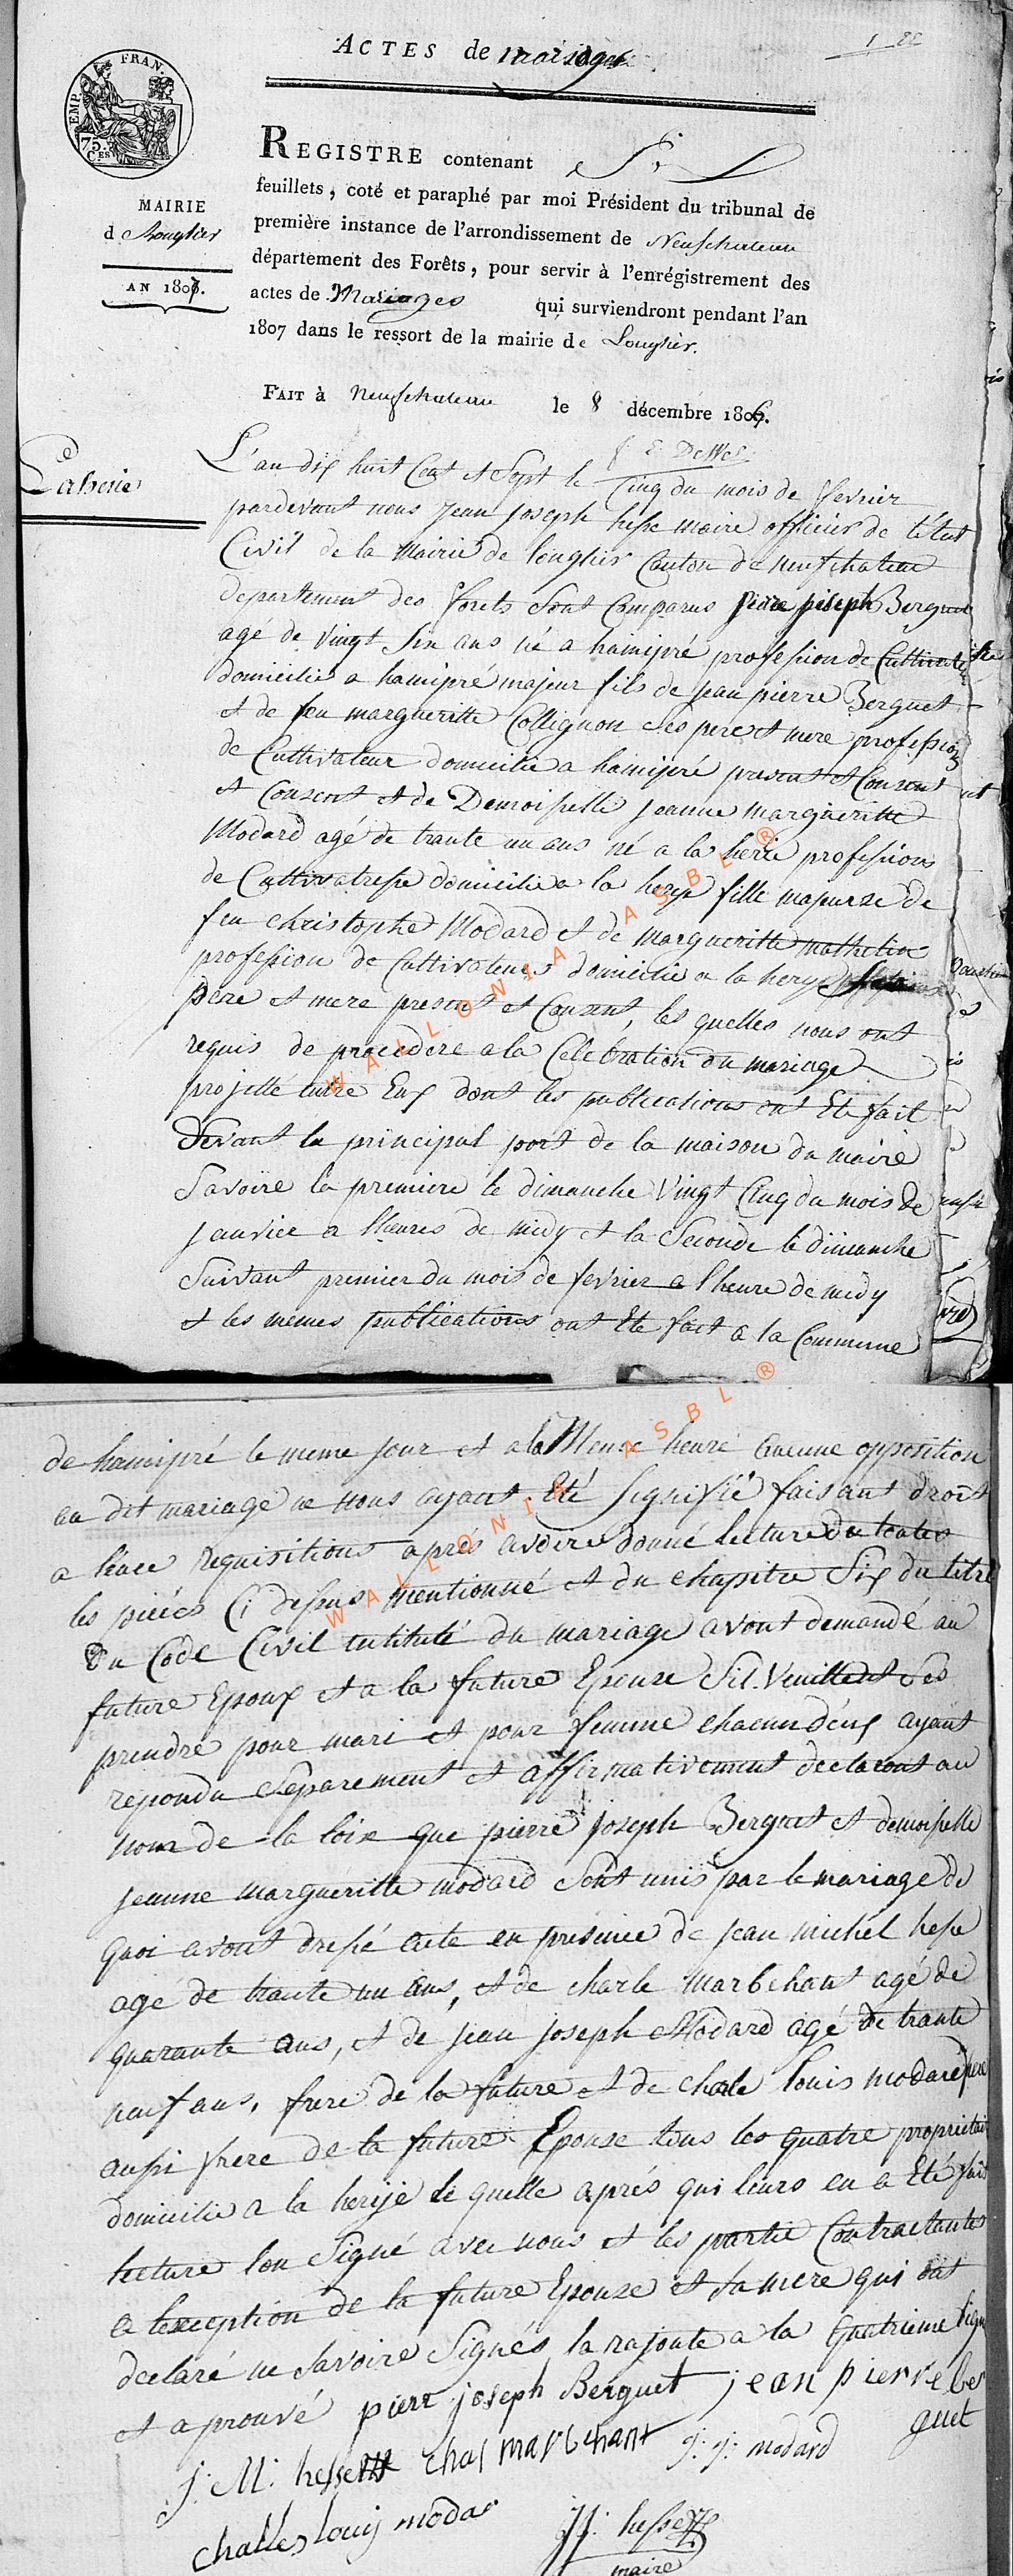 ACTES de mariages
1
EMP. FRAN.
75.
CES
MAIRIE
d Longlier
AN 1807.
REGISTRE contenant
feuillets, coté et paraphé par moi Président du tribunal de
première instance de l'arrondissement de Neufchateau
département des Forêts, pour servir à l'enrégistrement des
actes de Mariages qui surviendront pendant l'an
1807 dans le ressort de la mairie de Longlier.
FAIT à Neufchateau le 8 décembre 1806.
Laherie
L'an dix huit Cent et Sept le Cinq du mois de fevrier
pardevant nous jean joseph hesse maire officier de l'état
Civil de la Mairie de longlier Canton de neufchateau
departement des forets Sont Comparus pierre joseph Berguet
agé de vingt Six ans né a hamipré profession de Cultivateur
domicilié a hamipré majeur fils de jean pierre Berguet
et de feu margueritte Collignon ses pere et mere profession
de Cultivateur domicilié a hamipré present et Consent
et Consent et de Demoiselle jeanne margueritte
Modard agé de trante un ans né a la herie profession
de Cultivatresse domicilie a la herye fille majeure de
feu christophe Modard et de margueritte mathelin
profession de Cultivateurs domicilie a la herye
pere et mere present et Consent, les quelles nous ont
requis de procedere a la Celebration du mariage
projetté entre Eux dont les publications ont Eté fait
Devant la principal port de la maison du maire
Savoire la premiere le dimanche vingt Cinq du mois de
janvier a lheures de midy et la Seconde le dimanche
Suivant premier du mois de fevrier a lheure de midy
et les memes publications ont Eté fait a la Commune
de hamipré le meme jour et a la Meme heure aucune opposition
au dit mariage ne nous ayant Eté Signifié faisant droit
a leure requisitions aprés avoire donné lecture de toutes
les piéces Ci dessus mentionné et du chapitre Six du titre
Du Code Civil intitulé du mariage avont demandé au
future Epoux et a la future Epouse Sil Veuillent Ses
prendre pour mari et pour femme chacun d'eux ayant
repondu Separement et affirmativement declaront au
nom de la loix que pierre joseph Berguet et demoiselle
jeanne margueritte modard Sont unis par le mariage de
quoi avont dressé acte en presence de jean michel hesse
agé de trante un ans, et de charle marbehant agé de
quarante ans, et de jean joseph Modard agé de trante
neuf ans, frere de la future et de charle louis modard
aussi frere de la future Epouse tous les quatre proprietair
domicilie a la herije le quelle aprés qui leurs en a Eté fait
lecture lon Signé avec nous et les partie Contractantes
a lexception de la future Epouse et Sa mere qui ont
declaré ne Savoire Signés la rajoute a la quatrieme ligne
et aprouvé pierr joseph Berguet jean pierre ber
guet
J: M: hesse chal marbehant J: j: modard
challes louij modar
JJ: hesse
maire
WALLONIA ASBL ®
WALLONIA ASBL ®